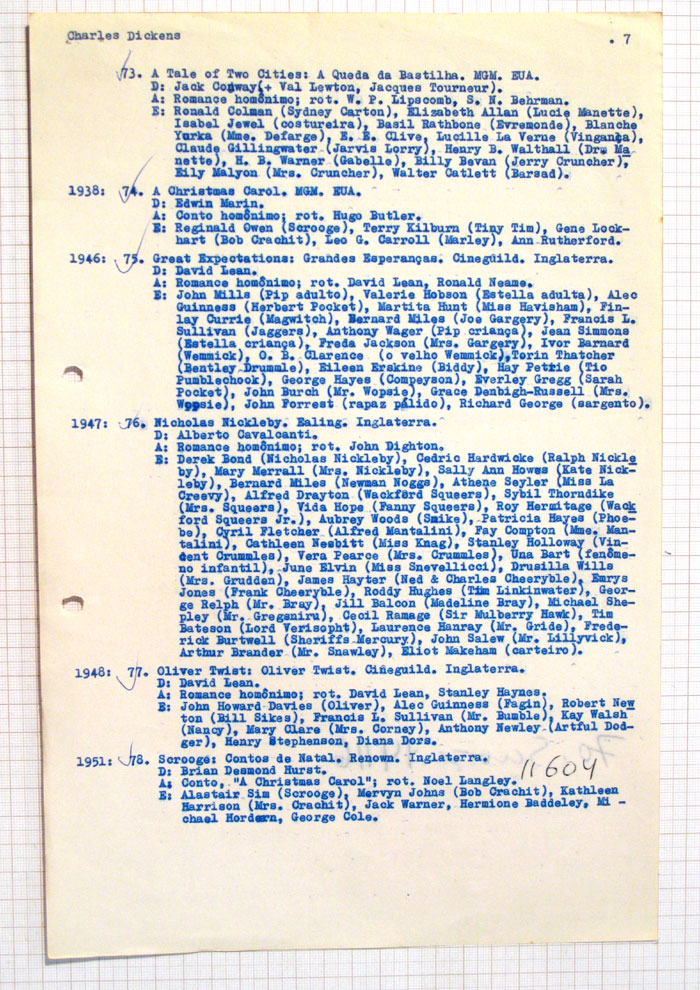 Charles Dickens . 7
73. A Tale of Two Cities: A Queda da Bastilha. MGM. EUA.
D: Jack Conway(+ Val Lewton, Jacques Tourneur).
A: Romance homônimo; rot. W. P. Lipscomb, S. N. Behrman.
E: Ronald Colman (Sydney Carton), Elizabeth Allan (Lucie Manette),
Isabel Jewel (costureira), Basil Rathbone (Evremonde), Blanche
Yurka (Mme. Defarge), E. E. Clive, Lucille La Verne (Vingança),
Claude Gillingwater (Jarvis Lorry), Henry B. Walthall (Dr. Ma
nette), H. B. Warner (Gabelle), Billy Bevan (Jerry Cruncher),
Eily Malyon (Mrs. Cruncher), Walter Catlett (Barsad).
1938: 74. A Christmas Carol. MGM. EUA.
D: Edwin Marin.
A: Conto homônimo; rot. Hugo Butler.
E: Reginald Owen (Scrooge), Terry Kilburn (Tiny Tim), Gene Lock-
hart (Bob Crachit), Leo G. Carroll (Marley), Ann Rutherford.
1946: 75. Great Expectations: Grandes Esperanças. Cineguild. Inglaterra.
D: David Lean.
A: Romance homônimo; rot. David Lean, Ronald Neame.
E: John Mills (Pip adulto), Valerie Hobson (Estella adulta), Alec
Guinness (Herbert Pocket), Martita Hunt (Miss Havisham), Fin-
lay Currie (Magwitch), Bernard Miles (Joe Gargery), Francis L.
Sullivan (Jaggers), Anthony Wager (Pip criança), Jean Simmons
(Estella criança), Freda Jackson (Mrs. Gargery), Ivor Barnard
(Wemmick), O. B. Clarence (o velho Wemmick),Torin Thatcher
(Bentley Drummle), Eileen Erskine (Biddy), Hay Petrie (Tio
Pumblechook), George Hayes (Compeyson), Everley Gregg (Sarah
Pocket), John Burch (Mr. Wopsie), Grace Denbigh-Russell (Mrs.
Wopsie), John Forrest (rapaz pálido), Richard George (sargento).
1947: 76. Nicholas Nickleby. Ealing. Inglaterra.
D: Alberto Cavalcanti.
A: Romance homônimo; rot. John Dighton.
E: Derek Bond (Nicholas Nickleby), Cedric Hardwicke (Ralph Nickle
by), Mary Merrall (Mrs. Nickleby), Sally Ann Howes (Kate Nick-
leby), Bernard Miles (Newman Noggs), Athene Seyler (Miss La
Creevy), Alfred Drayton (Wackford Squeers), Sybil Thorndike
(Mrs. Squeers), Vida Hope (Fanny Squeers), Roy Hermitage (Wack
ford Squeers Jr.), Aubrey Woods (Smike), Patricia Hayes (Phoe-
be), Cyril Fletcher (Alfred Mantalini), Fay Compton (Mme. Man-
talini), Cathleen Nesbitt (Miss Knag), Stanley Holloway (Vin-
cent Crummles), Vera Pearce (Mrs. Crummles), Una Bart (fenôme-
no infantil), June Elvin (Miss Snevellicci), Drusilla Wills
(Mrs. Grudden), James Hayter (Ned & Charles Cheeryble), Emrys
Jones (Frank Cheeryble), Roddy Hughes (Tim Linkinwater), Geor-
ge Relph (Mr. Bray), Jill Balcon (Madeline Bray), Michael She-
pley (Mr. Gregsniru), Cecil Ramage (Sir Mulberry Hawk), Tim
Bateson (Lord Verisopht), Laurence Hanray (Mr. Gride), Frede-
rick Burtwell (Sheriffs Mercury), John Salew (Mr. Lillyvick),
Arthur Brander (Mr. Snawley), Eliot Makeham (carteiro).
1948: 77. Oliver Twist: Oliver Twist. Cineguild. Inglaterra.
D: David Lean.
A: Romance homônimo; rot. David Lean, Stanley Haynes.
E: John Howard Davies (Oliver), Alec Guinness (Fagin), Robert New
ton (Bill Sikes), Francis L. Sullivan (Mr. Bumble), Kay Walsh
(Nancy), Mary Clare (Mrs. Corney), Anthony Newley (Artful Dod-
ger), Henry Stephenson, Diana Dors.
1951: 78. Scrooge: Contos de Natal. Renown. Inglaterra.
D: Brian Desmond Hurst.
A: Conto, "A Christmas Carol"; rot. Noel Langley. 11604
E: Alastair Sim (Scrooge), Mervyn Johns (Bob Crachit), Kathleen
Harrison (Mrs. Crachit), Jack Warner, Hermione Baddeley, Mi -
chael Hordern, George Cole.